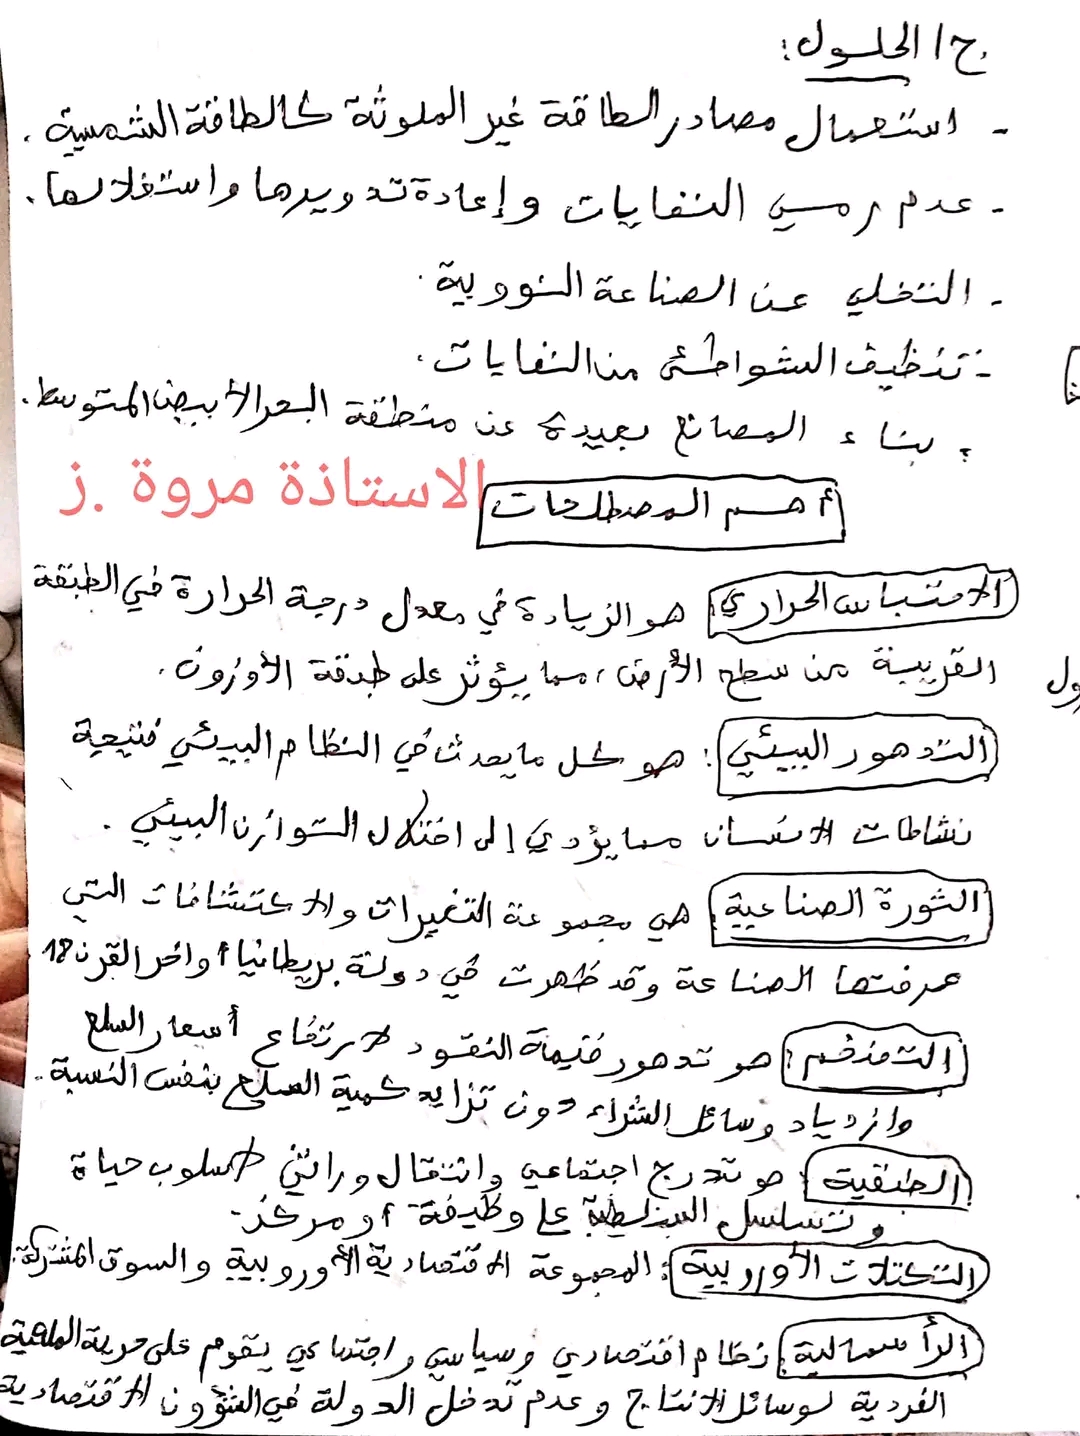 ج/ الحلول:
- استعمال مصادر الطاقة غير الملوثة كالطاقة الشمسية.
- عدم رمي النفايات وإعادة تدويرها واستغلالها.
- التخلي عن الصناعة النووية.
- تنظيف الشواطئ من النفايات.
- بناء المصانع بعيدة عن منطقة البحر الأبيض المتوسط.
الاستاذة مروة .ز
أهم المصطلحات
الاحتباس الحراري: هو الزيادة في معدل درجة الحرارة في الطبقة
القريبة من سطح الأرض، مما يؤثر على طبقة الأوزون.
التدهور البيئي: هو كل ما يحدث في النظام البيئي نتيجة
نشاطات الانسان مما يؤدي إلى اختلال التوازن البيئي.
الثورة الصناعية: هي مجموعة التغيرات والاكتشافات التي
عرفتها الصناعة وقد ظهرت في دولة بريطانيا أواخر القرن 18
التضخم: هو تدهور قيمة النقود لارتفاع أسعار السلع
وازدياد وسائل الشراء دون تزايد كمية السلع بنفس النسبة.
الطبقية: هو تدرج اجتماعي وانتقال وراثي لأسلوب حياة
وتسلسل السلطة على وظيفة أو مركز.
التكتلات الأوروبية: المجموعة الاقتصادية الأوروبية والسوق المشتركة.
الرأسمالية: نظام اقتصادي وسياسي واجتماعي يقوم على حرية الملكية
الفردية لوسائل الانتاج وعدم تدخل الدولة في الشؤون الاقتصادية